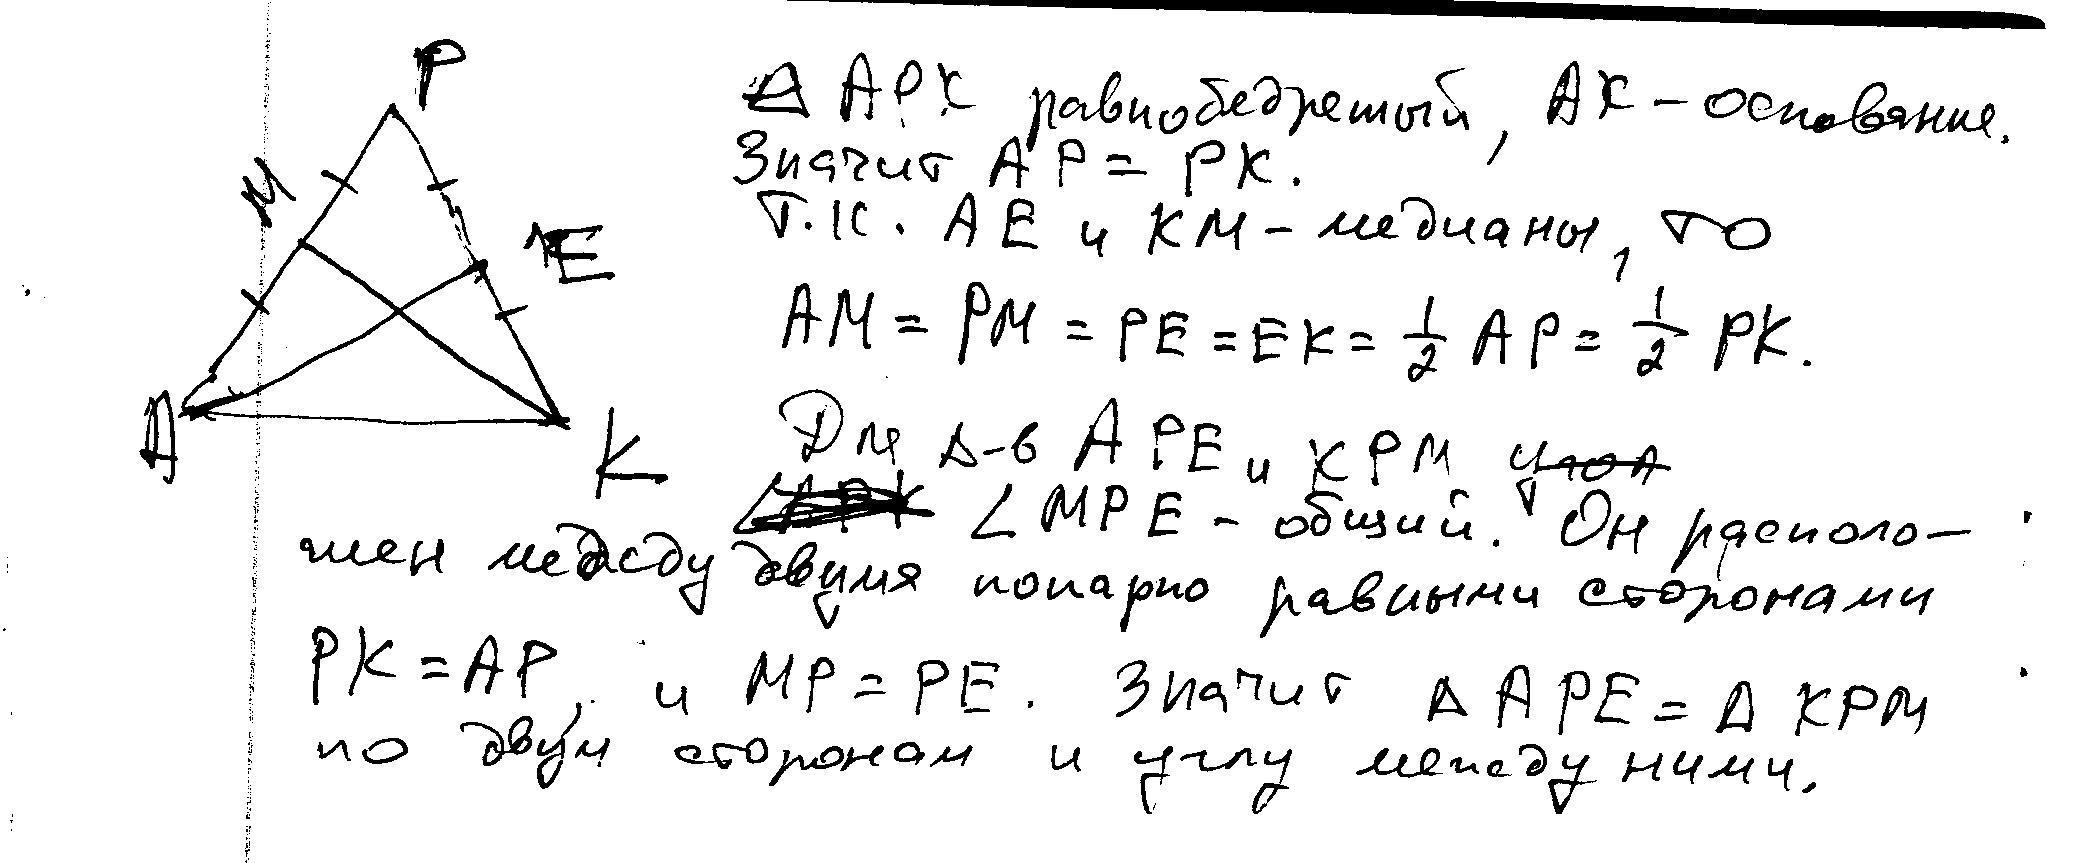 P
M
E
A
K
Δ APK равнобедреный, AK - основание.
Значит AP = PK.
Т.к. AE и KM - медианы, то
AM = PM = PE = EK = 1/2 AP = 1/2 PK.
Для Δ-в APE и KPM угол
∠APK ∠MPE - общий. Он располо-
жен между двумя попарно равными сторонами
PK = AP и MP = PE. Значит Δ APE = Δ KPM
по двум сторонам и углу между ними.